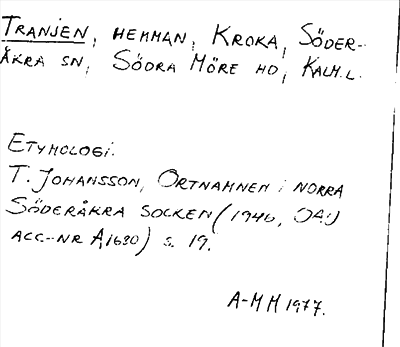 TRANJEN, HEMMAN, KROKA, SÖDER-
ÅKRA SN, SÖDRA MÖRE HD, KALM.L.
ETYMOLOGI.
T. JOHANSSON, ORTNAMNEN I NORRA
SÖDERÅKRA SOCKEN (1946, OAU
ACC-NR A1630) S. 19.
A-M H 1977.